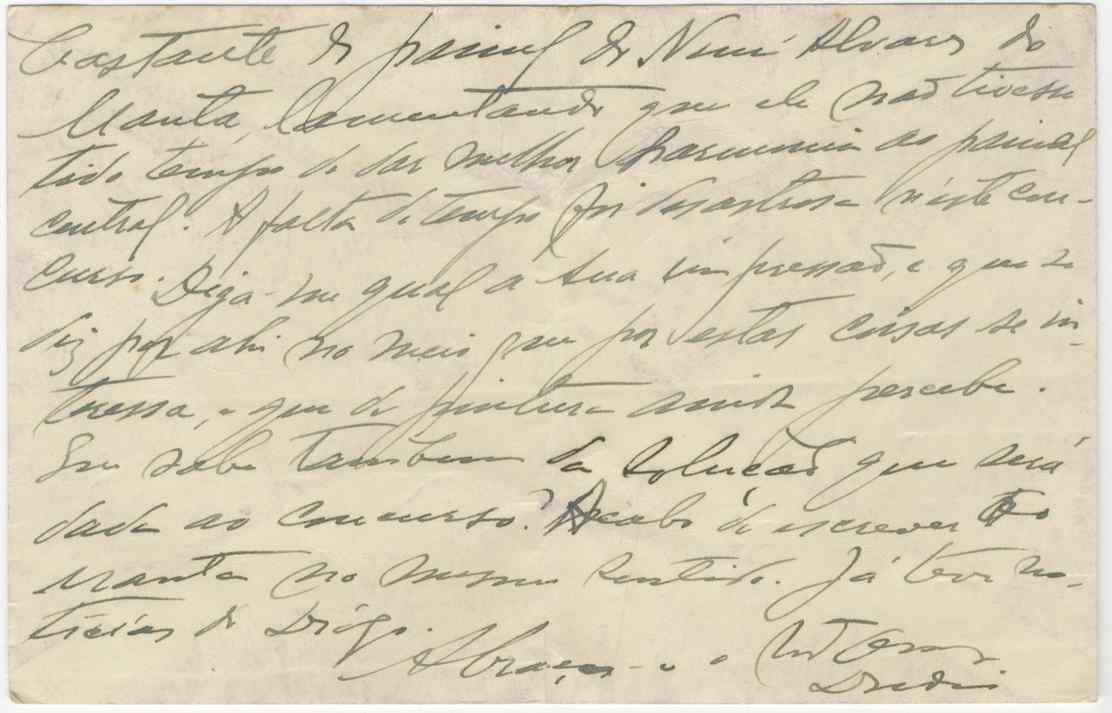 bastante do painel do Nuno Alvares do
Manta, lamentando que ele não tivesse
tido tempo de dar melhor harmonia ao painel
central. A falta de tempo foi desastrosa n'este con-
curso. Diga-me qual a sua impressão, e que se
diz por ahi no meio que por estas coisas se in-
teressa, e que de pintura ainda percebe.
E sabe tambem da solução que será
dada ao concurso? Acabo de escrever ao
Manta no mesmo sentido. Já teve no-
ticias do Diogo.
Abraça-o o